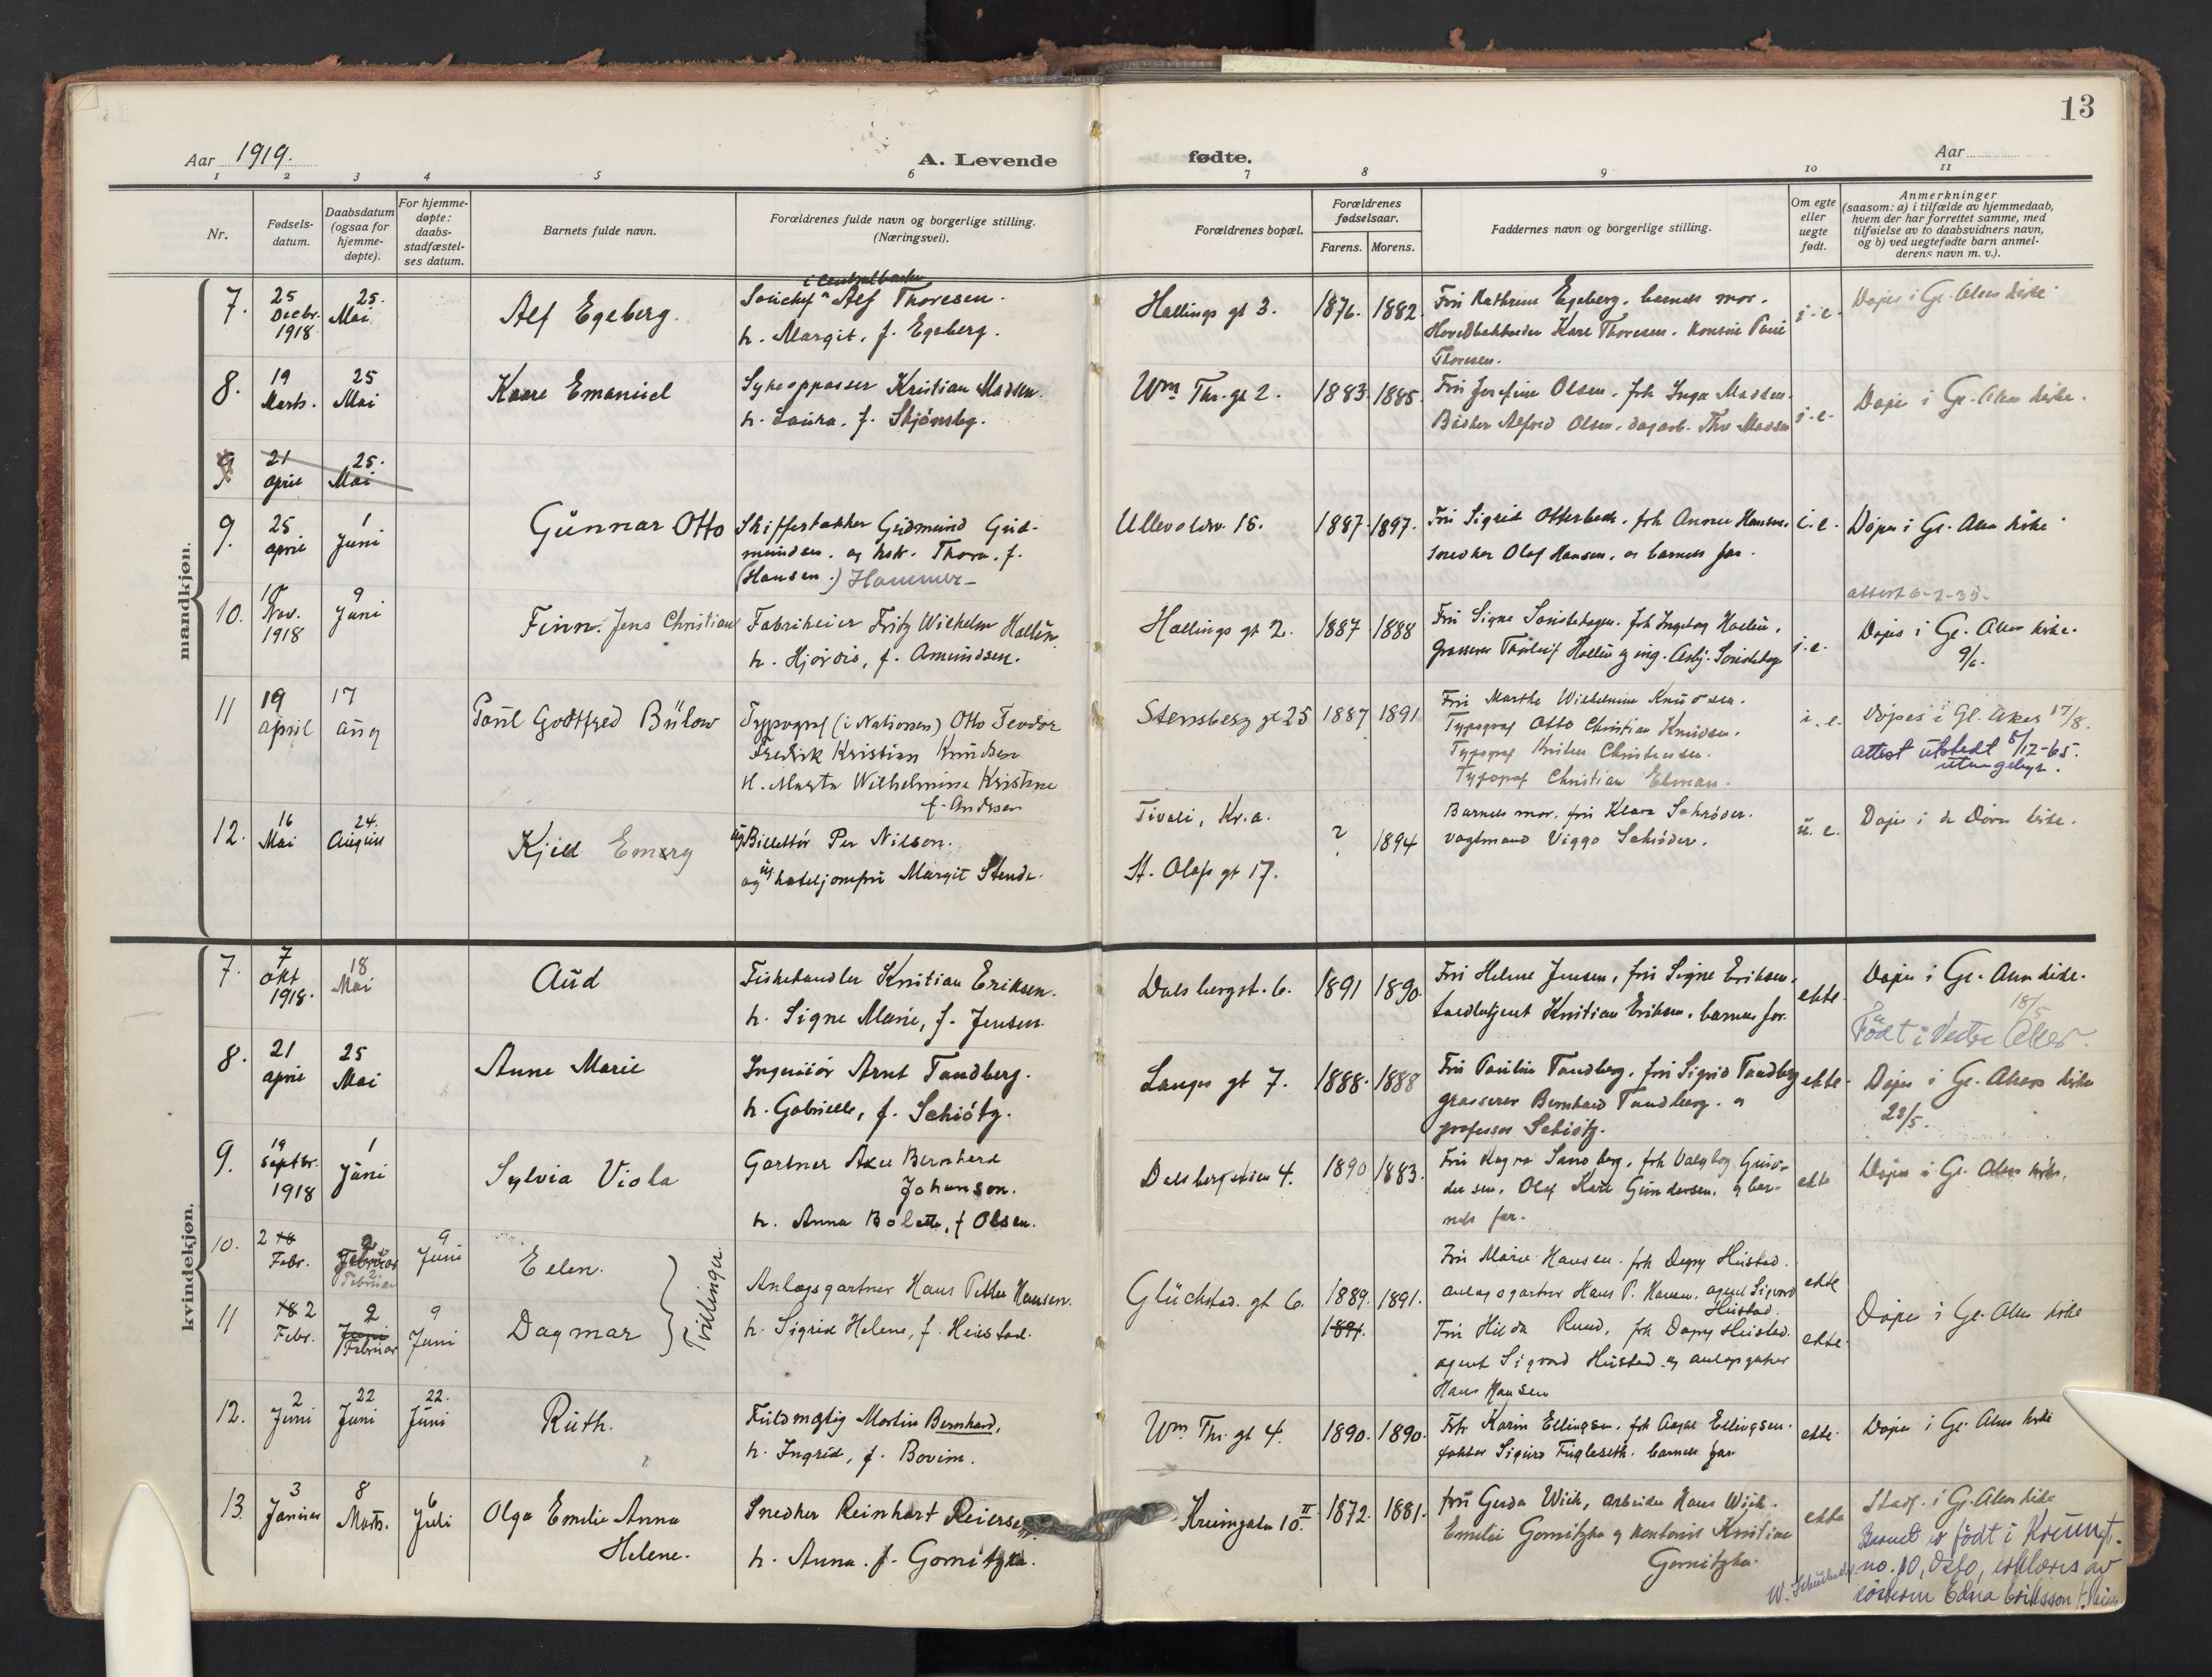 13
Aar 1919.
A. Levende
fødte.
Aar
1 2 3 4 5 6 7 8 9 10 11
Nr.
Fødsels-
datum.
Daabsdatum
(ogsaa for
hjemme-
døpte).
For hjemme-
døpte:
daabs-
stadfæstel-
ses datum.
Barnets fulde navn.
Forældrenes fulde navn og borgerlige stilling.
(Næringsvei).
Forældrenes bopæl.
Forældrenes
fødselsaar.
Farens. Morens.
Faddernes navn og borgerlige stilling.
Om egte
eller
uegte
født.
Anmerkninger
(saasom: a) i tilfælde av hjemmedaab,
hvem der har forrettet samme, med
tilføielse av to daabsvidners navn,
og b) ved uegtefødte barn anmel-
derens navn m. v.).
mandkjøn.
7.
25
Decbr.
1918
25.
Mai
Alf Egeberg.
Alf Thoresen.
h. Margit, f. Egeberg.
Hallings gt 3.
1876. 1882.
Fru Kathrine Egeberg. barnets mor.
Kare Thoresen.
Thoresen.
i. e.
8.
19
Marts.
25
Mai
Kaare Emanuel
Sykeopasser Kristian Madsen.
h. Laura, f. Skjönsby.
Wm. Thr. gt 2.
1883. 1885.
Fru Josefine Olsen, frk Inga Madsen.
Alfred Olsen, Thv Madsen
i. e.
9
21
april
25.
Mai
9.
25
april
1
Juni
Gunnar Otto
Gudmund Gud-
mundsen. og hstr. Thora, f.
(Hansen.) Hammer
Ullevoldsv. 15.
1887. 1897.
Fru Sigrid Otterbeck, frk Hansen.
Snedker Olaf Hansen. og barnets far.
i. e.
10.
Nov.
1918
9
Juni
Finn. Jens Christian
Fabrikeier Fritz Wilhelm Hallén.
h. Hjördis, f. Amundsen.
Hallings gt 2.
1887 1888
Fru Signe
i. e.
attest 6-2-35.
9/6.
11
19
april
17
aug
Paul Godtfred Bülow
Typograf (i Nationen) Otto Teodor
Fredrik Kristian Knudsen
H. Marta Wilhelmine Kristine
f. Andersen
Stensberg gt 25
1887 1891
Fru Marthe Wilhelmine Knudsen.
Typograf Otto Christian Knudsen.
Typograf Christensen.
Typograf Christian Elman.
i. e.
Döpes i Gl. Aker 17/8.
attest utstedt 8/12-65.
12.
16
Mai
24.
August
Kjell Emery
ug Billettör Per Nilson.
og ug hoteljomfru Margit Stende.
Tivoli, Kr.a.
St. Olafs gt 17.
? 1894
Barnets mor, fru Klara Schröder.
Vagtmand Viggo Schröder.
u. e.
kvindekjøn.
7.
7
okt
1918.
18
Mai
Aud
Fiskehandler Kristian Eriksen.
h. Signe Marie, f. Jensen.
Dalsbergst. 6.
1891 1890.
Fru Helene Jensen, fru Signe Eriksen,
Kristian Eriksen, barnets far.
ekte.
18/5
Født i Vestre Aker.
8.
21
april
25
Mai
Anne Marie
Ingeniör Arnt Tandberg.
h. Gabrielle, f. Schiötz.
Langes gt 7.
1888. 1888
Fru Pauline Tandberg, fru Sigrid Tandberg
grosserer Bernhard Tandberg. og
professor Schiötz.
ekte.
9.
19
Septbr.
1918
1
Juni
Sylvia Viola
Gartner Axel Bernhard
Johanson.
h. Anna Bolette, f Olsen.
Dalsbergstien 4.
1890 1883.
Fru Sandberg, frk Valgborg Gun-
dersen, Olaf Gundersen, og bar-
nets far.
ekte
10.
2 18
Febr.
2
Februar
9
Juni
Ellen.
Tvillinger.
Anlægsgartner Hans Petter Hansen.
h. Sigrid Helene, f. Heistad.
Glückstad. gt 6.
1889. 1891.
1891.
Fru Marie Hansen. frk Dagny Heistad.
anlægsgartner Hans P. Hansen, agent Sigvard
Heistad.
ekte
11
18 2
Febr.
2
Juni
Februar
9
Juni
Dagmar
Fru Hilda Ruud, frk Dagny Heistad.
agent Sigvard Heistad og anlægsgartner
Hans Hansen
ekte.
12.
2
Juni
22
Juni
22.
Juni
Ruth.
Fuldmægtig Martin Bernhard,
h. Ingrid, f. Bovim.
Wm. Thr. gt 4.
1890. 1890.
Frk Karin Ellingsen, frk Aagot Ellingsen.
Sigurd Fugleseth. barnets far
ekte.
13.
3
Januar
8
Marts.
6
Juli
Olga Emilie Anna
Helene.
Snedker Reinhart Reiersen
h. Anna. f. Gornitzka.
Kruingaten 10 II.
1872. 1881.
fru Gerda Wick, arbeider Hans Wick.
Emilie Gornitzka og Kristian
Gornitzka.
ekte
Stadf. i Gl. Aker kirke
Barnet er født i Kruingt.
no. 10, Oslo, erklæres av
søsteren Edna Eriksson f. Reier